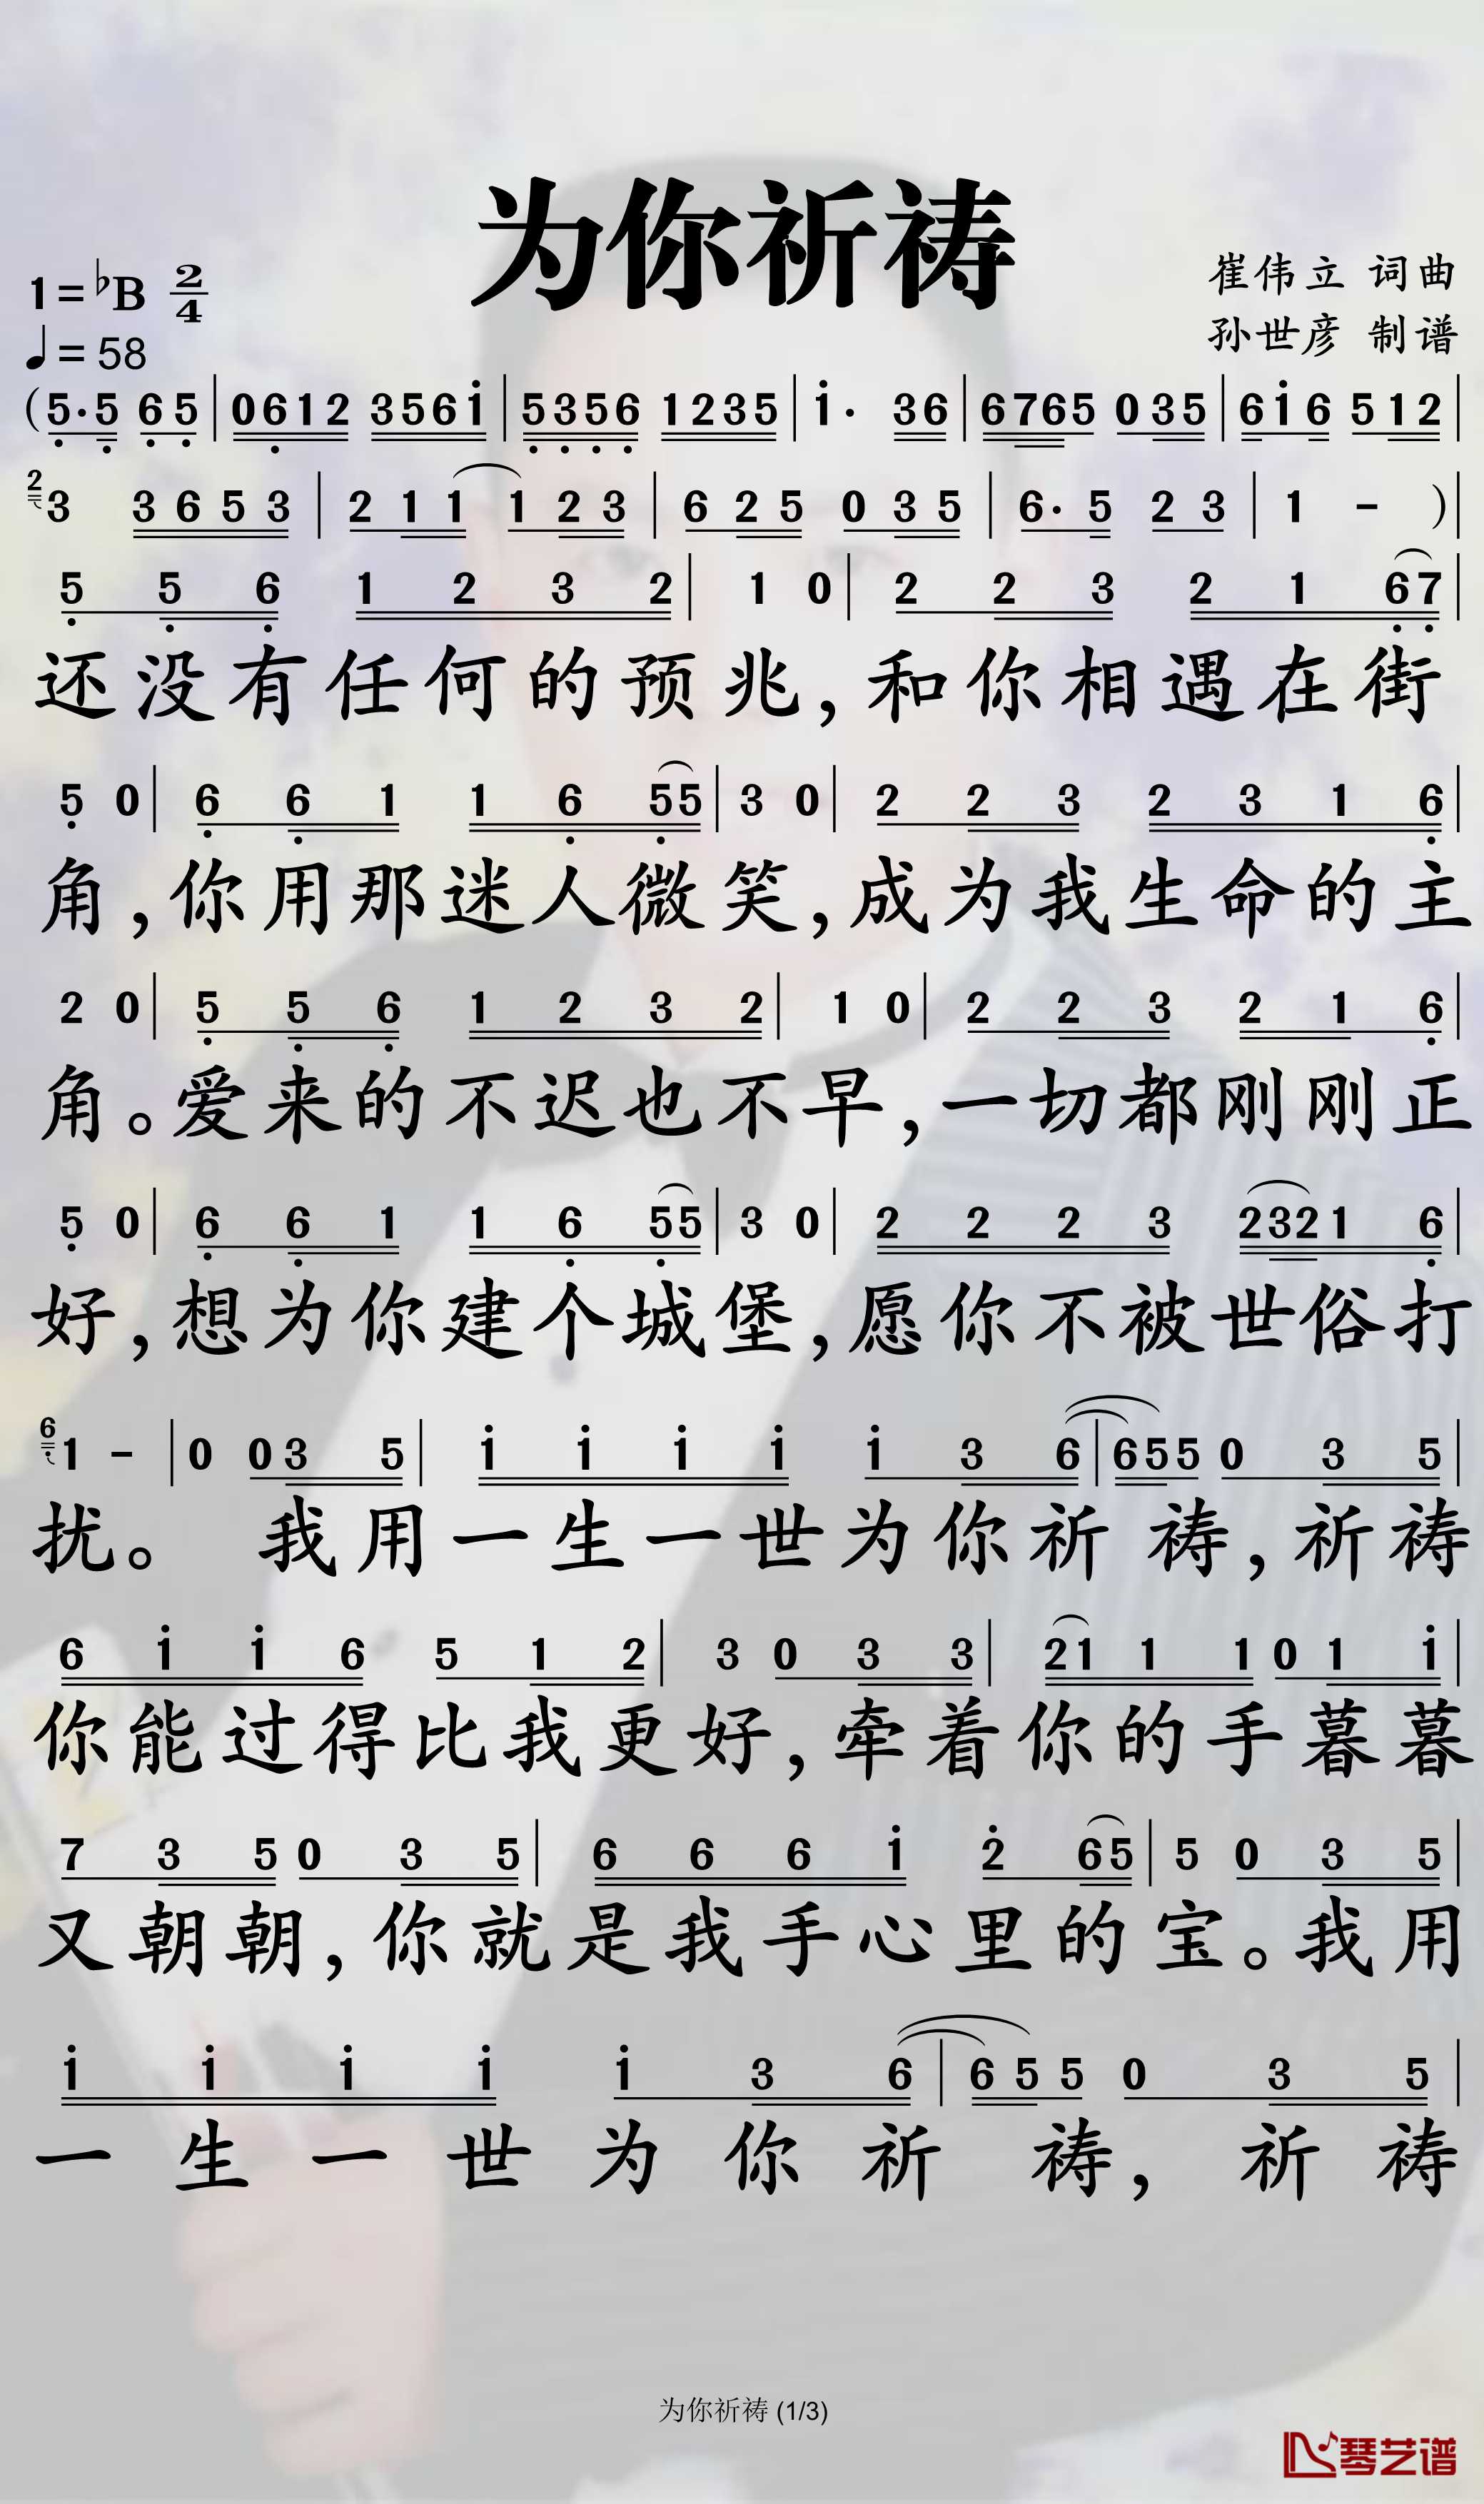 为你祈祷
1=♭B 2/4
崔伟立 词曲
♩=58
孙世彦 制谱
(5·5 65|0612 3561|5356 1235|1· 36|6765 035|616 512|
2 3 3653|211 123|625 035|6·5 23|1 -)|
5 5 6 1 2 3 2|1 0|2 2 3 2 1 67|
还没有任何的预兆,和你相遇在街
5 0|6 6 1 1 6 55|3 0|2 2 3 2 3 1 6|
角,你用那迷人微笑,成为我生命的主
2 0|5 5 6 1 2 3 2|1 0|2 2 3 2 1 6|
角。爱来的不迟也不早,一切都刚刚正
5 0|6 6 1 1 6 55|3 0|2 2 2 3 2321 6|
好,想为你建个城堡,愿你不被世俗打
6 1 -|0 03 5|1 1 1 1 1 3 6|655 0 3 5|
扰。 我用一生一世为你祈祷,祈祷
6 1 1 6 5 1 2|3 0 3 3|21 1 1 0 1 1|
你能过得比我更好,牵着你的手暮暮
7 3 5 0 3 5|6 6 6 1 2 65|5 0 3 5|
又朝朝,你就是我手心里的宝。我用
1 1 1 1 1 3 6|6 5 5 0 3 5|
一生一世为你祈祷,祈祷
为你祈祷 (1/3)
琴艺谱